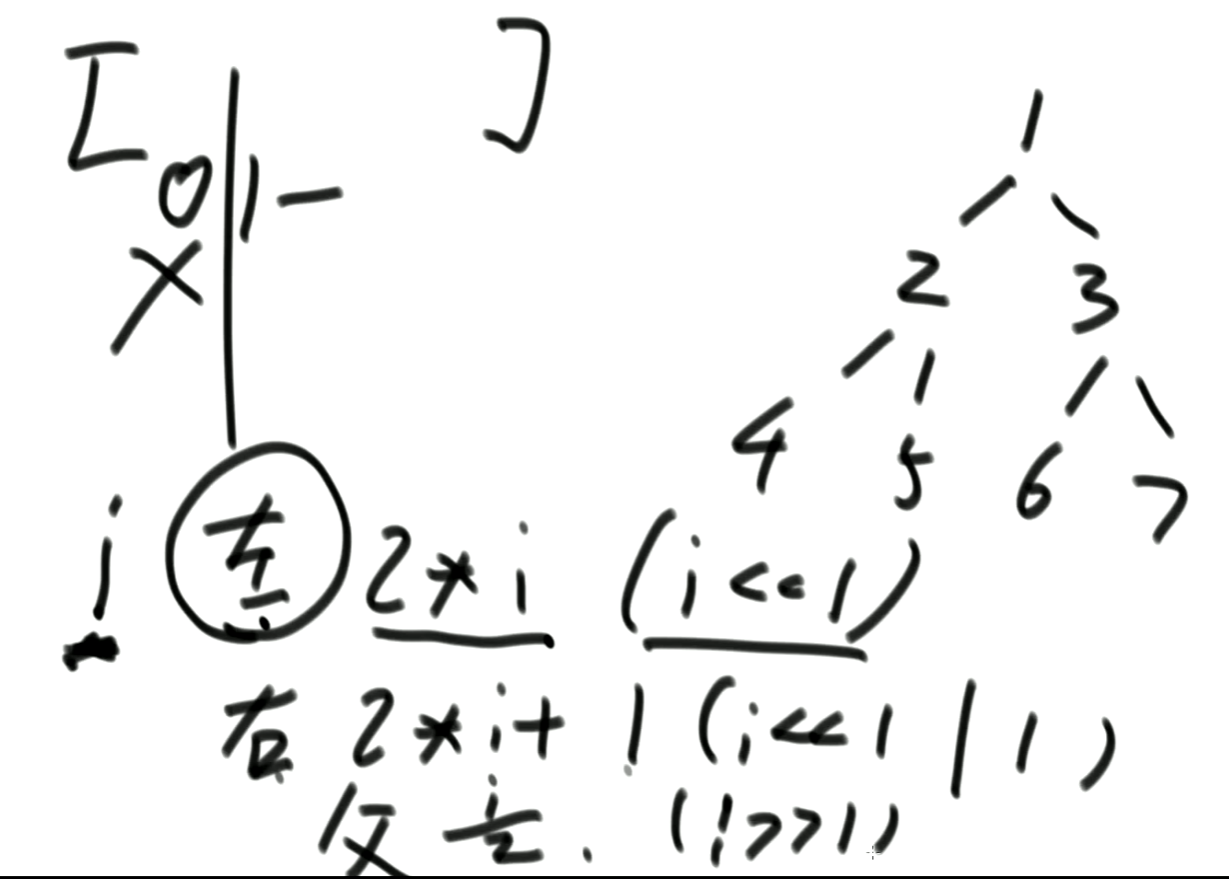 [ ]
0 | 1 -
X
1
2 3
4 5 6 7
i 左 2*i (i<<1)
右 2*i+1 (i<<1|1)
父 i/2. (i>>1)